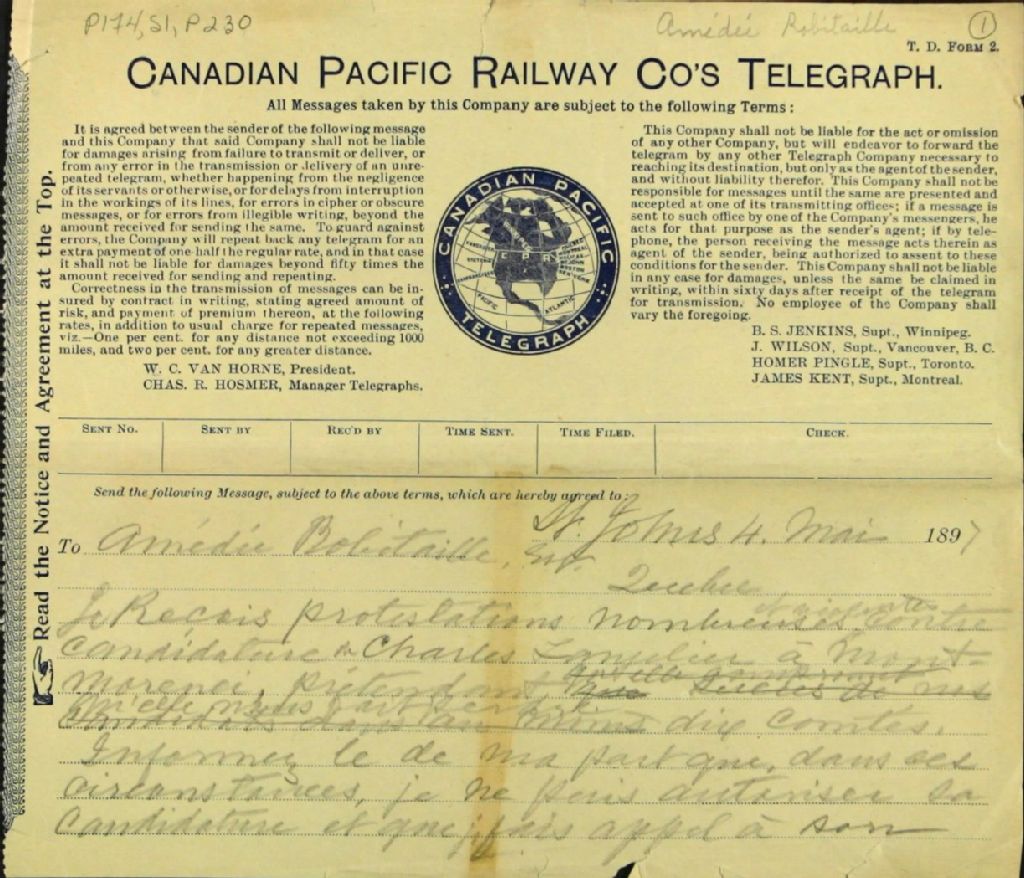 P174, S1, P230
Amédée Robitaille
1
T. D. FORM 2.
CANADIAN PACIFIC RAILWAY CO'S TELEGRAPH.
All Messages taken by this Company are subject to the following Terms:
It is agreed between the sender of the following message
and this Company that said Company shall not be liable
for damages arising from failure to transmit or deliver, or
from any error in the transmission or delivery of an unre-
peated telegram, whether happening from the negligence
of its servants or otherwise, or for delays from interruption
in the workings of its lines, for errors in cipher or obscure
messages, or for errors from illegible writing, beyond the
amount received for sending the same. To guard against
errors, the Company will repeat back any telegram for an
extra payment of one-half the regular rate, and in that case
it shall not be liable for damages beyond fifty times the
amount received for sending and repeating.
Correctness in the transmission of messages can be in-
sured by contract in writing, stating agreed amount of
risk, and payment of premium thereon, at the following
rates, in addition to usual charge for repeated messages,
viz.—One per cent. for any distance not exceeding 1000
miles, and two per cent. for any greater distance.
W. C. VAN HORNE, President.
CHAS. R. HOSMER, Manager Telegraphs.
CANADIAN PACIFIC
C P R
PACIFIC
ATLANTIC
TELEGRAPH
This Company shall not be liable for the act or omission
of any other Company, but will endeavor to forward the
telegram by any other Telegraph Company necessary to
reaching its destination, but only as the agent of the sender,
and without liability therefor. This Company shall not be
responsible for messages until the same are presented and
accepted at one of its transmitting offices; if a message is
sent to such office by one of the Company's messengers, he
acts for that purpose as the sender's agent; if by tele-
phone, the person receiving the message acts therein as
agent of the sender, being authorized to assent to these
conditions for the sender. This Company shall not be liable
in any case for damages, unless the same be claimed in
writing, within sixty days after receipt of the telegram
for transmission. No employee of the Company shall
vary the foregoing.
B. S. JENKINS, Supt., Winnipeg.
J. WILSON, Supt., Vancouver, B. C.
HOMER PINGLE, Supt., Toronto.
JAMES KENT, Supt., Montreal.
Read the Notice and Agreement at the Top.
SENT NO. SENT BY REC'D BY TIME SENT. TIME FILED. CHECK.
Send the following Message, subject to the above terms, which are hereby agreed to:
St. Johns 4. Mai 1897
To Amédée Robitaille,
Quebec
Je Reçois protestations nombreuses et violentes contre
candidature de Charles Langelier à Mont-
morenci, prétendant
dix comtés.
Informez le de ma part que, dans ces
circonstances, je ne puis autoriser sa
candidature et que fais appel à son